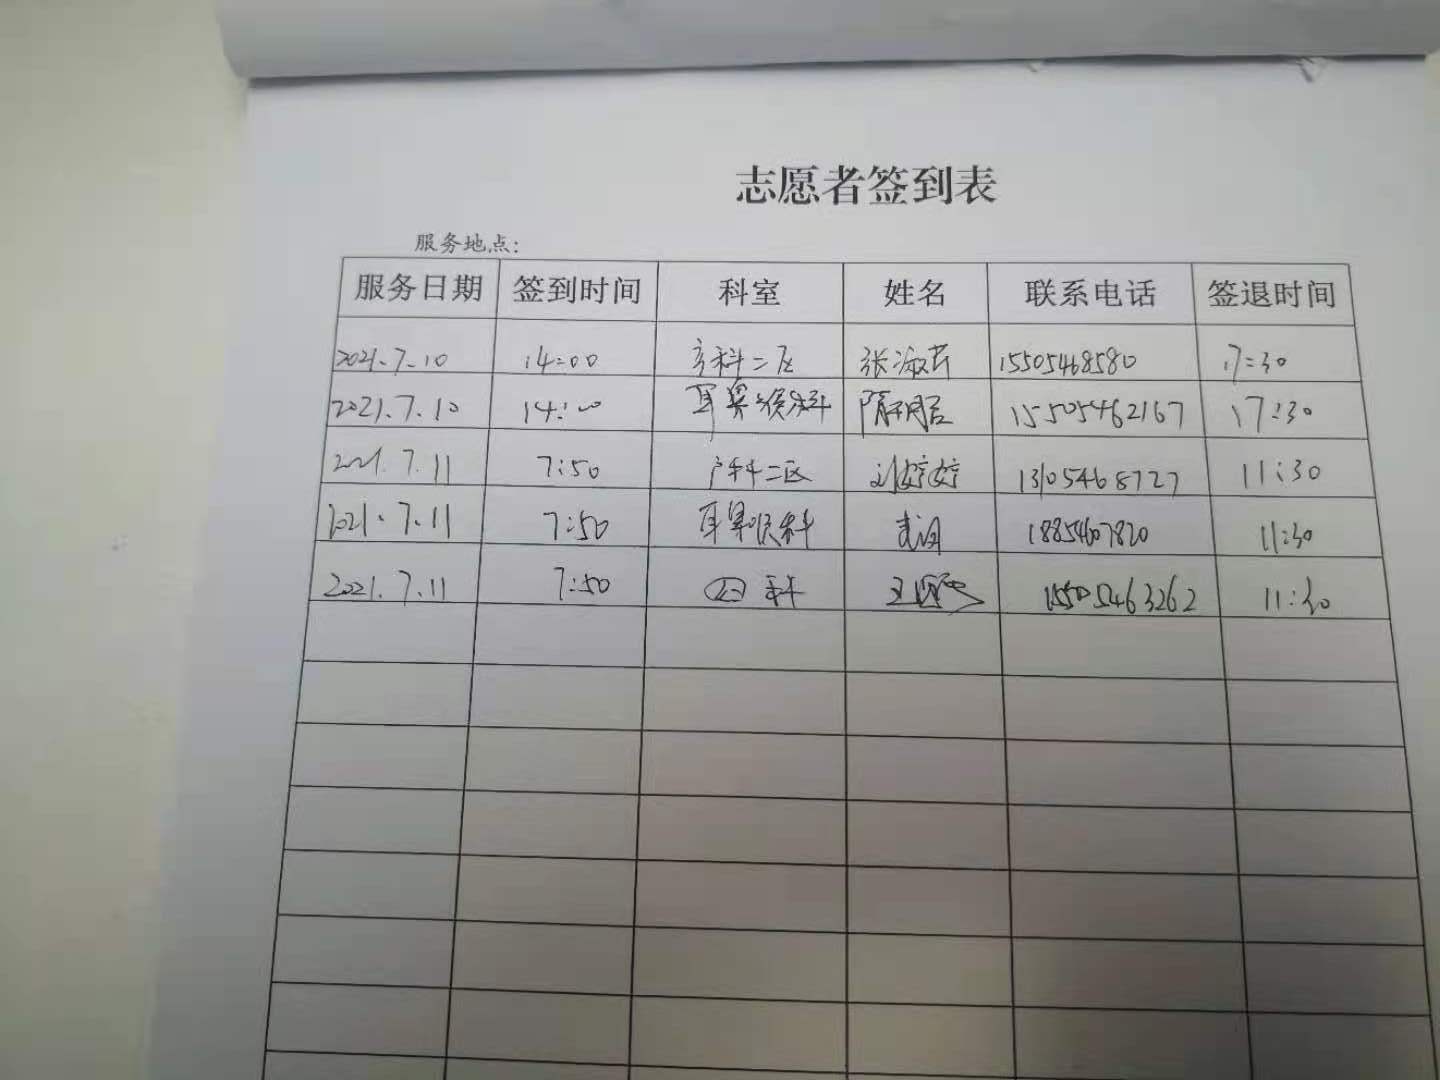 志愿者签到表
服务地点:
服务日期 签到时间 科室 姓名 联系电话 签退时间
2021.7.10 14:00 产科二区 张淑芹 15505468580 17:30
2021.7.10 14:00 耳鼻喉科 15505462167 17:30
2021.7.11 7:50 产科二区 刘婷婷 13105468727 11:30
2021.7.11 7:50 耳鼻喉科 18854607820 11:30
2021.7.11 7:50 科 15505463262 11:30